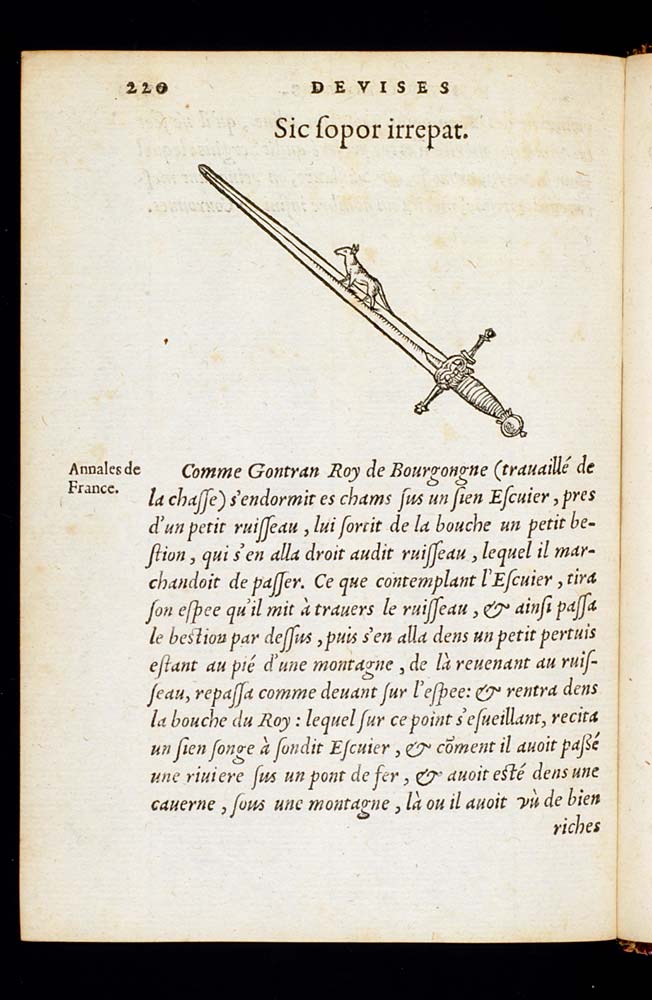 220 DEVISES
Sic ſopor irrepat.
Annales de
France.
Comme Gontran Roy de Bourgongne (trauaillé de
la chaſſe) s'endormit es chams ſus un ſien Eſcuier, pres
d'un petit ruiſſeau, lui ſortit de la bouche un petit be-
ſtion, qui s'en alla droit audit ruiſſeau, lequel il mar-
chandoit de paſſer. Ce que contemplant l'Eſcuier, tira
ſon eſpee qu'il mit à trauers le ruiſſeau, & ainſi paſſa
le beſtion par deſſus, puis s'en alla dens un petit pertuis
eſtant au pié d'une montagne, de là reuenant au ruiſ-
ſeau, repaſſa comme deuant ſur l'eſpee: & rentra dens
la bouche du Roy: lequel ſur ce point s'eſueillant, recita
un ſien ſonge à ſondit Eſcuier, & cõment il auoit paßé
une riuiere ſus un pont de fer, & auoit eſté dens une
cauerne, ſous une montagne, là ou il auoit vù de bien
riches